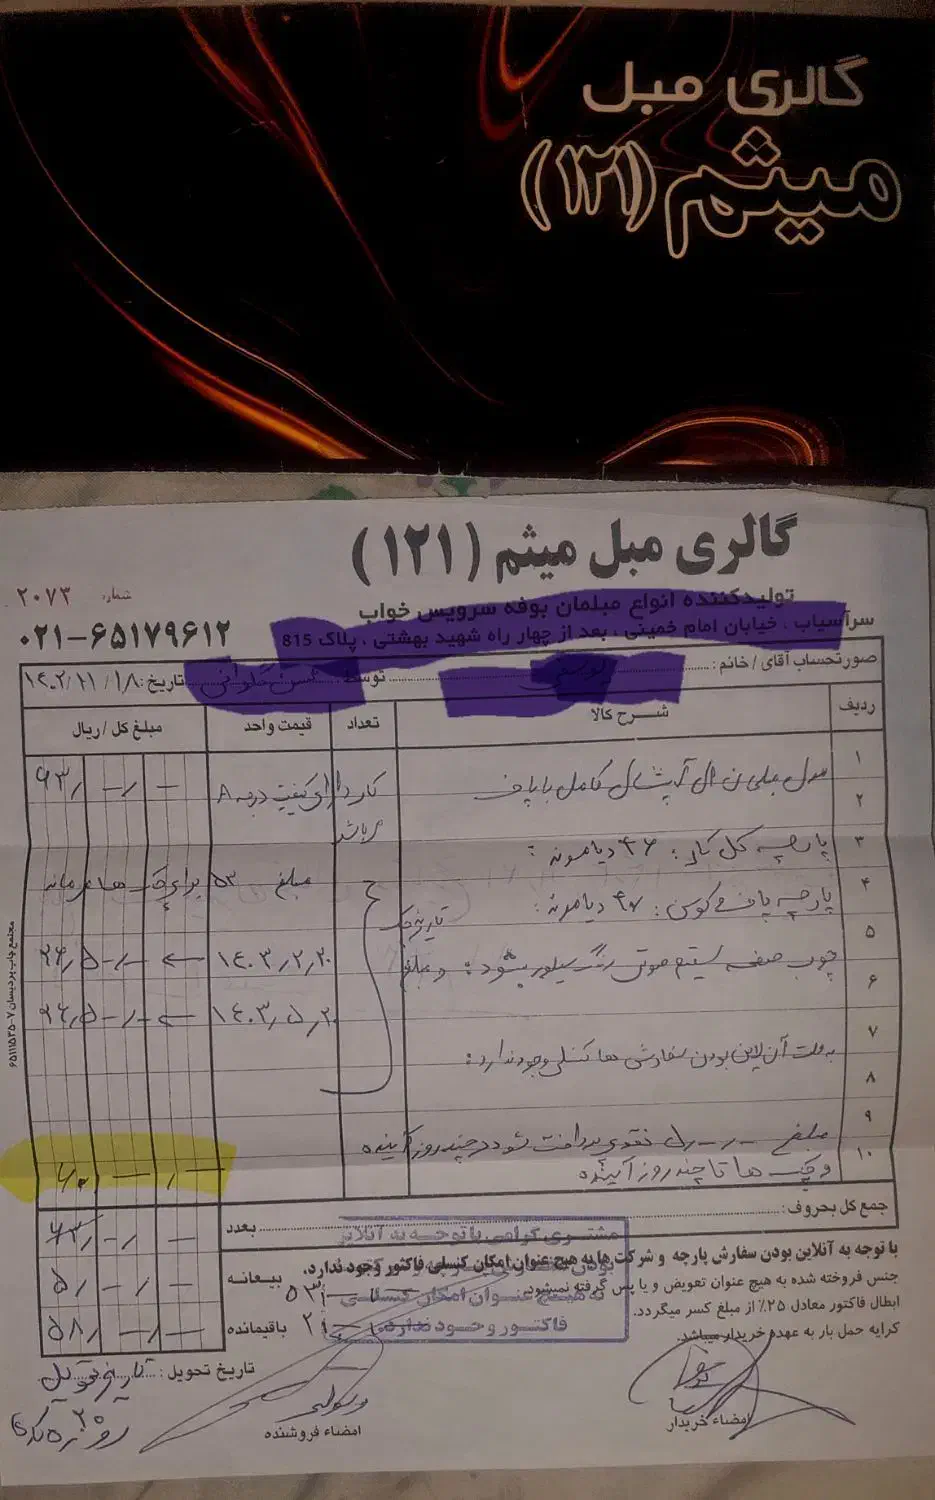 گالری مبل
میثم (۱۲۱)
گالری مبل میثم (۱۲۱)
تولیدکننده انواع مبلمان بوفه سرویس خواب
شماره: ۲۰۷۳
سرآسیاب ، خیابان امام خمینی ، بعد از چهار راه شهید بهشتی ، پلاک 815
۰۲۱-۶۵۱۷۹۶۱۲
صورتحساب آقای / خانم : توسط : تاریخ : ۱۴۰۲/۱۱/۱۸
ردیف شرح کالا تعداد قیمت واحد مبلغ کل / ریال
۱ مدل مبلی ال کامل با پاف ۶۳/--/--
۲ کار دارای کیفیت درجه A میباشد
۳ پارچه کل کار : ۴۶ دیاموند :
۴ پارچه پاف و کوسن : ۴۷ دیاموند : مبلغ ۵۳ برای چک ها میماند
۵ تاریخ چک
۶ چوب صفحه سیلور بشود : و مبلغ ۱۴۰۳/۲/۲۰ ← ۲۶/۵--/--
۷ ۱۴۰۳/۵/۲۰ ← ۲۶/۵--/--
۸ به علت آن لاین بودن سفارش ها کنسلی وجود ندارد :
۹ مبلغ نقدی پرداخت شود در چند روز آینده
۱۰ و چک ها تا چند روز آینده
جمع کل بحروف : بعدد ۶۳/--/--
با توجه به آنلاین بودن سفارش پارچه و شرکت ها به هیچ عنوان امکان کنسلی فاکتور وجود ندارد.
جنس فروخته شده به هیچ عنوان تعویض و یا پس گرفته نمیشود.
بیعانه ۵/--/--
ابطال فاکتور معادل ۲۵٪ از مبلغ کسر میگردد.
کرایه حمل بار به عهده خریدار میباشد.
باقیمانده ۵۸/--/--
مشتری گرامی با توجه به آنلاین
بودن
به هیچ عنوان امکان کنسلی
فاکتور وجود ندارد
تاریخ تحویل : تاریخ تحویل
۲۰ روز کاری
امضاء خریدار
امضاء فروشنده
مجتمع چاپ پردیسان ۷-۶۵۱۱۱۵۳۵